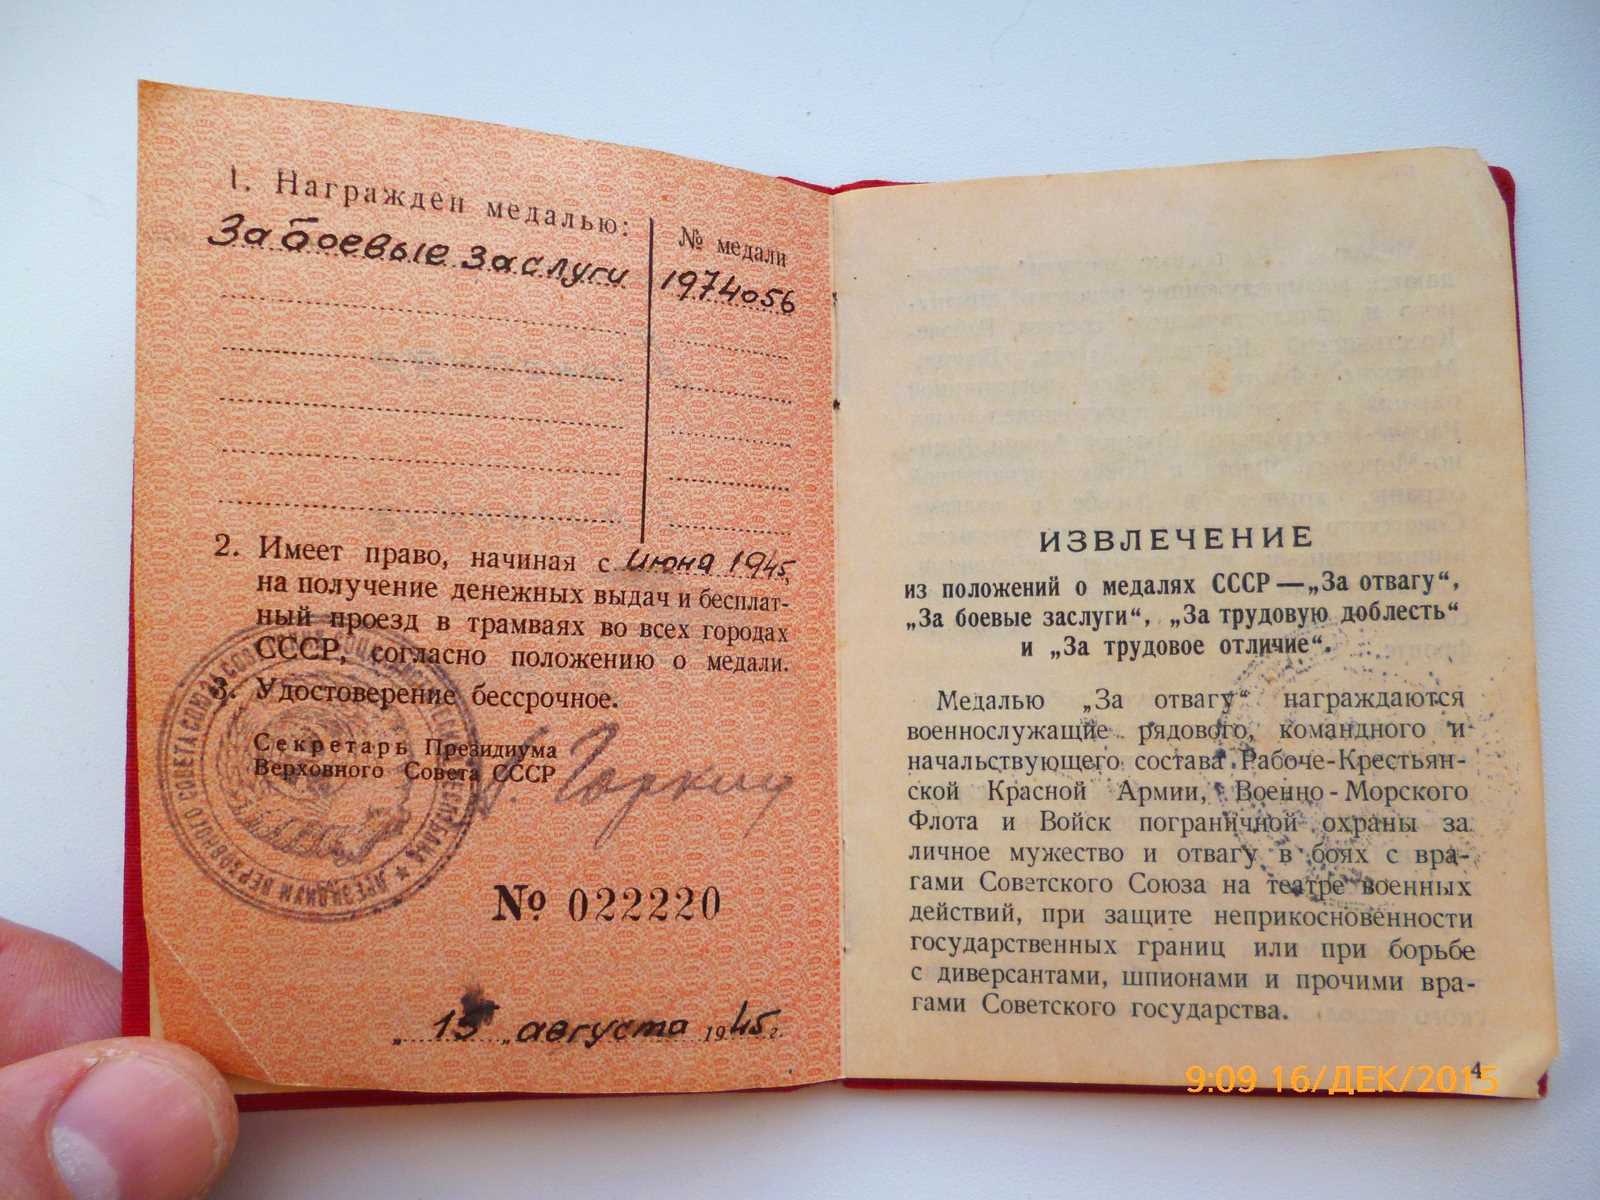 1. Награжден медалью:
За боевые заслуги
№ медали
1974056
2. Имеет право, начиная с Июня 1945,
на получение денежных выдач и бесплат-
ный проезд в трамваях во всех городах
СССР, согласно положению о медали.
3. Удостоверение бессрочное.
Секретарь Президиума
Верховного Совета СССР
А. Горкин
№ 022220
„15„ августа 1945 г.
ПРЕЗИДИУМ ВЕРХОВНОГО СОВЕТА СОЮЗА СОВЕТСКИХ СОЦИАЛИСТИЧЕСКИХ РЕСПУБЛИК
ИЗВЛЕЧЕНИЕ
из положений о медалях СССР—„За отвагу“,
„За боевые заслуги“, „За трудовую доблесть“
и „За трудовое отличие“.
Медалью „За отвагу“ награждаются
военнослужащие рядового, командного и
начальствующего состава Рабоче-Крестьян-
ской Красной Армии, Военно-Морского
Флота и Войск пограничной охраны за
личное мужество и отвагу в боях с вра-
гами Советского Союза на театре военных
действий, при защите неприкосновенности
государственных границ или при борьбе
с диверсантами, шпионами и прочими вра-
гами Советского государства.
4
9:09 16/ДЕК/2015